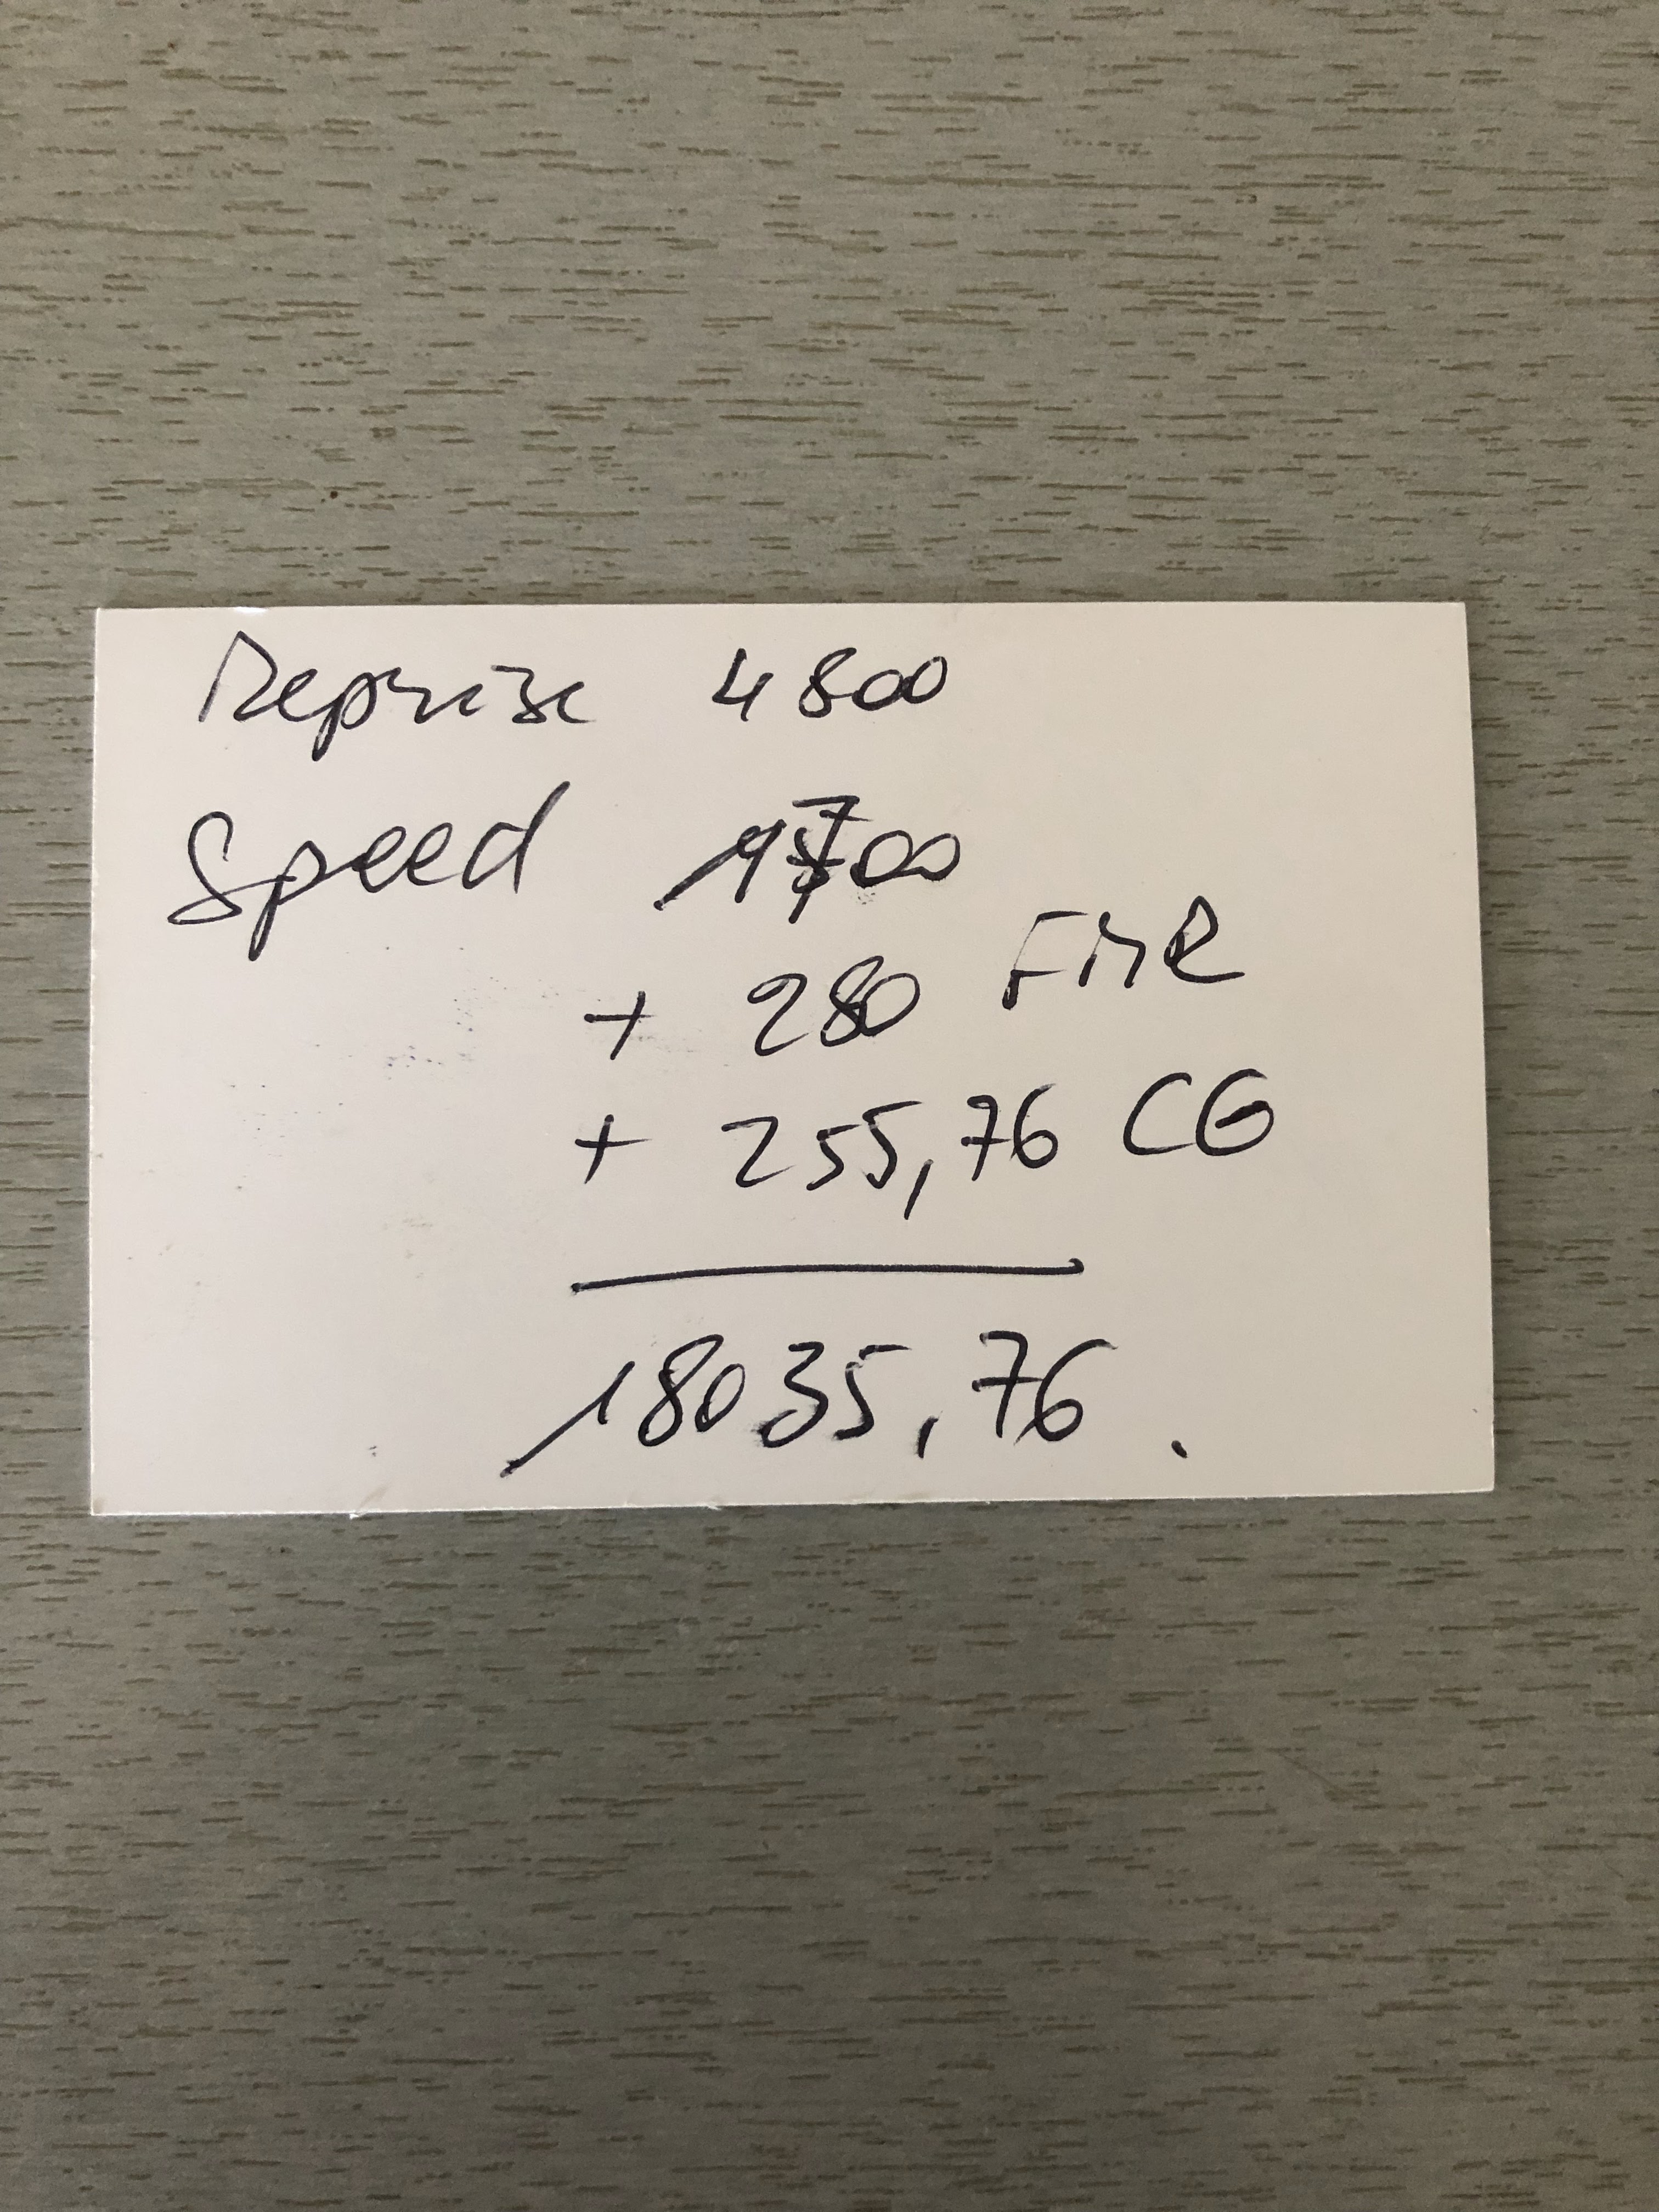 Reprise 4800
Speed
+ 280 FMR
+ 255,76 CG
18035,76.